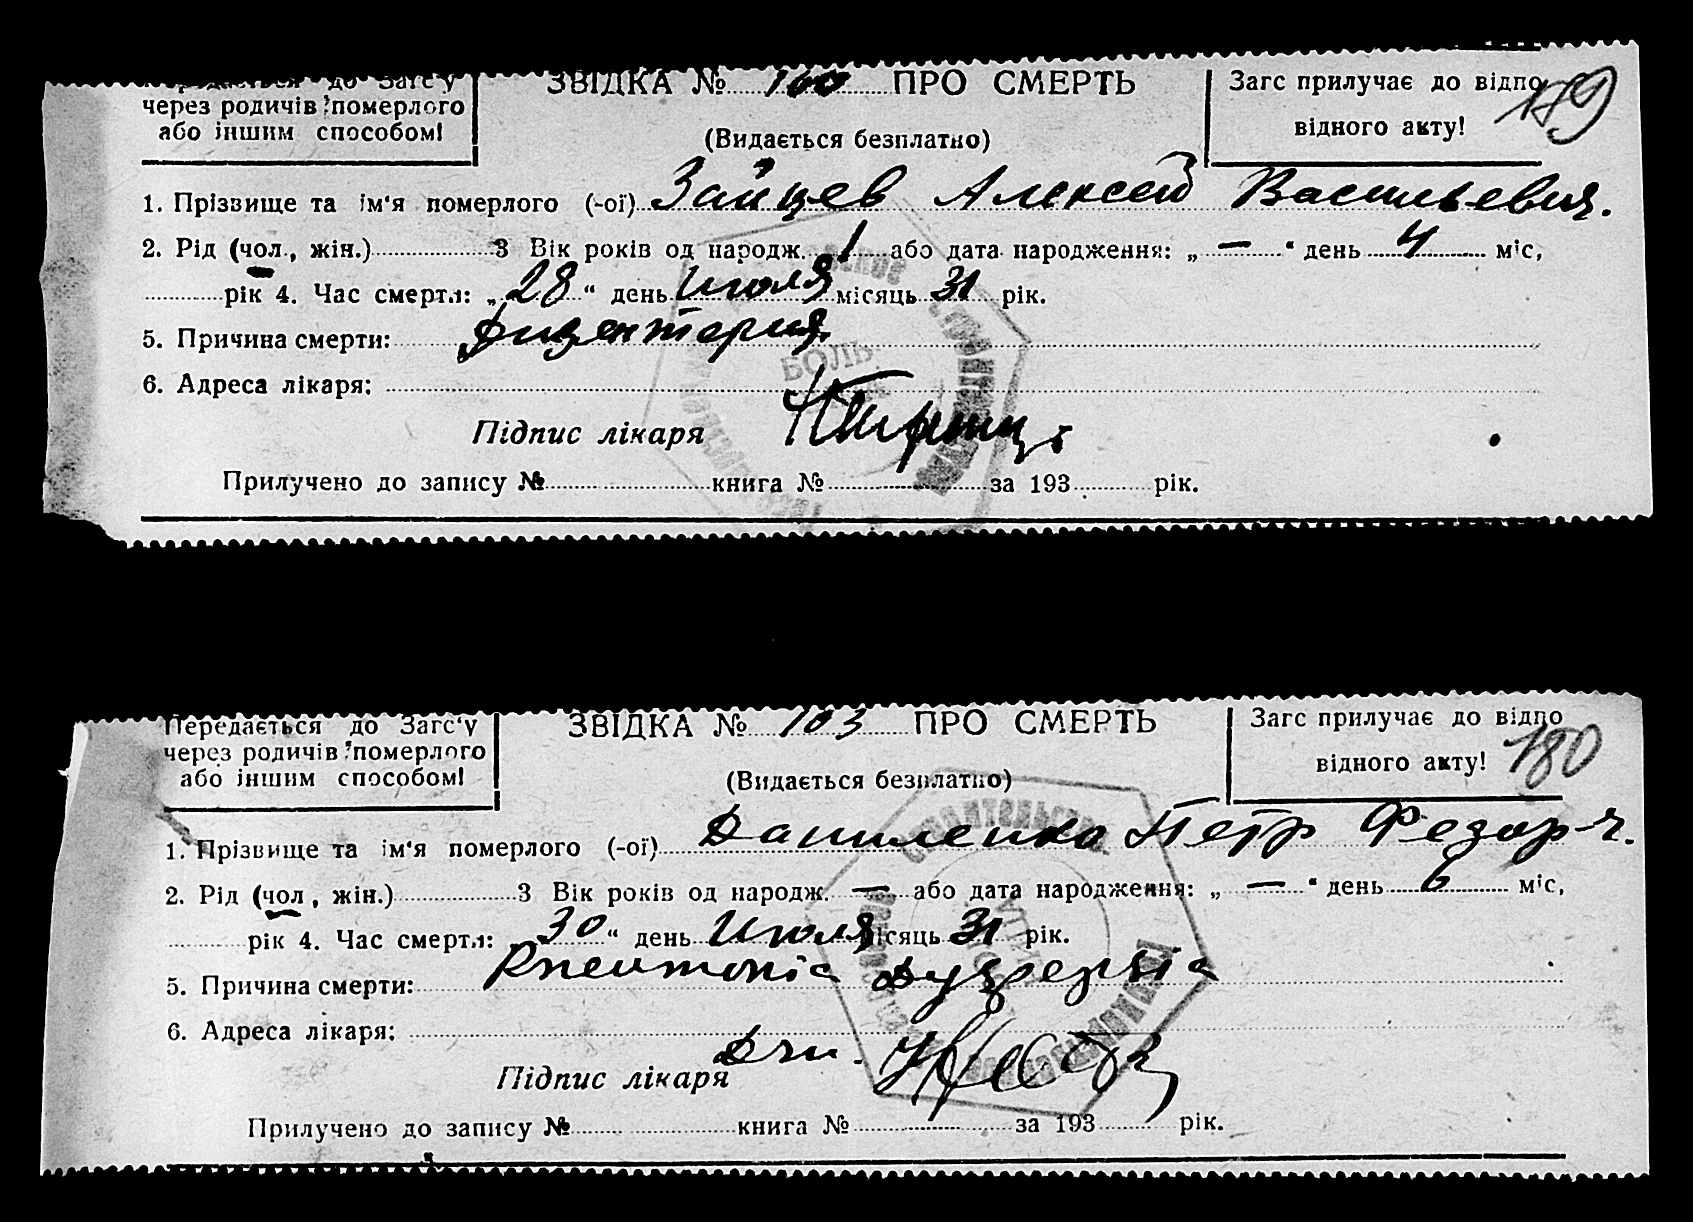 Передається до Загс'у
через родичів померлого
або іншим способом!
ЗВІДКА № 100 ПРО СМЕРТЬ
(Видається безплатно)
Загс прилучає до відпо
відного акту!
1. Прізвище та ім'я померлого (-ої) Зайцев Алексей Васильевич.
2. Рід (чол., жін.) 3 Вік років од народж. 1 або дата народження: „ — “ день 4 міс,
рік 4. Час смерти: „ 28 “ день Июля місяць 31 рік.
5. Причина смерти: Дизентерия
6. Адреса лікаря:
Підпис лікаря
Прилучено до запису № книга № за 193 рік.
Передається до Загс'у
через родичів померлого
або іншим способом!
ЗВІДКА № 103 ПРО СМЕРТЬ
(Видається безплатно)
Загс прилучає до відпо
відного акту!
180
1. Прізвище та ім'я померлого (-ої) Даниленко Петр Федор-ч.
2. Рід (чол, жін.) 3 Вік років од народж. — або дата народження: „ — “ день 6 міс,
рік 4. Час смерти: 30 “ день Июля місяць 31 рік.
5. Причина смерти: Pneumonia
6. Адреса лікаря:
Підпис лікаря
Прилучено до запису № книга № за 193 рік.